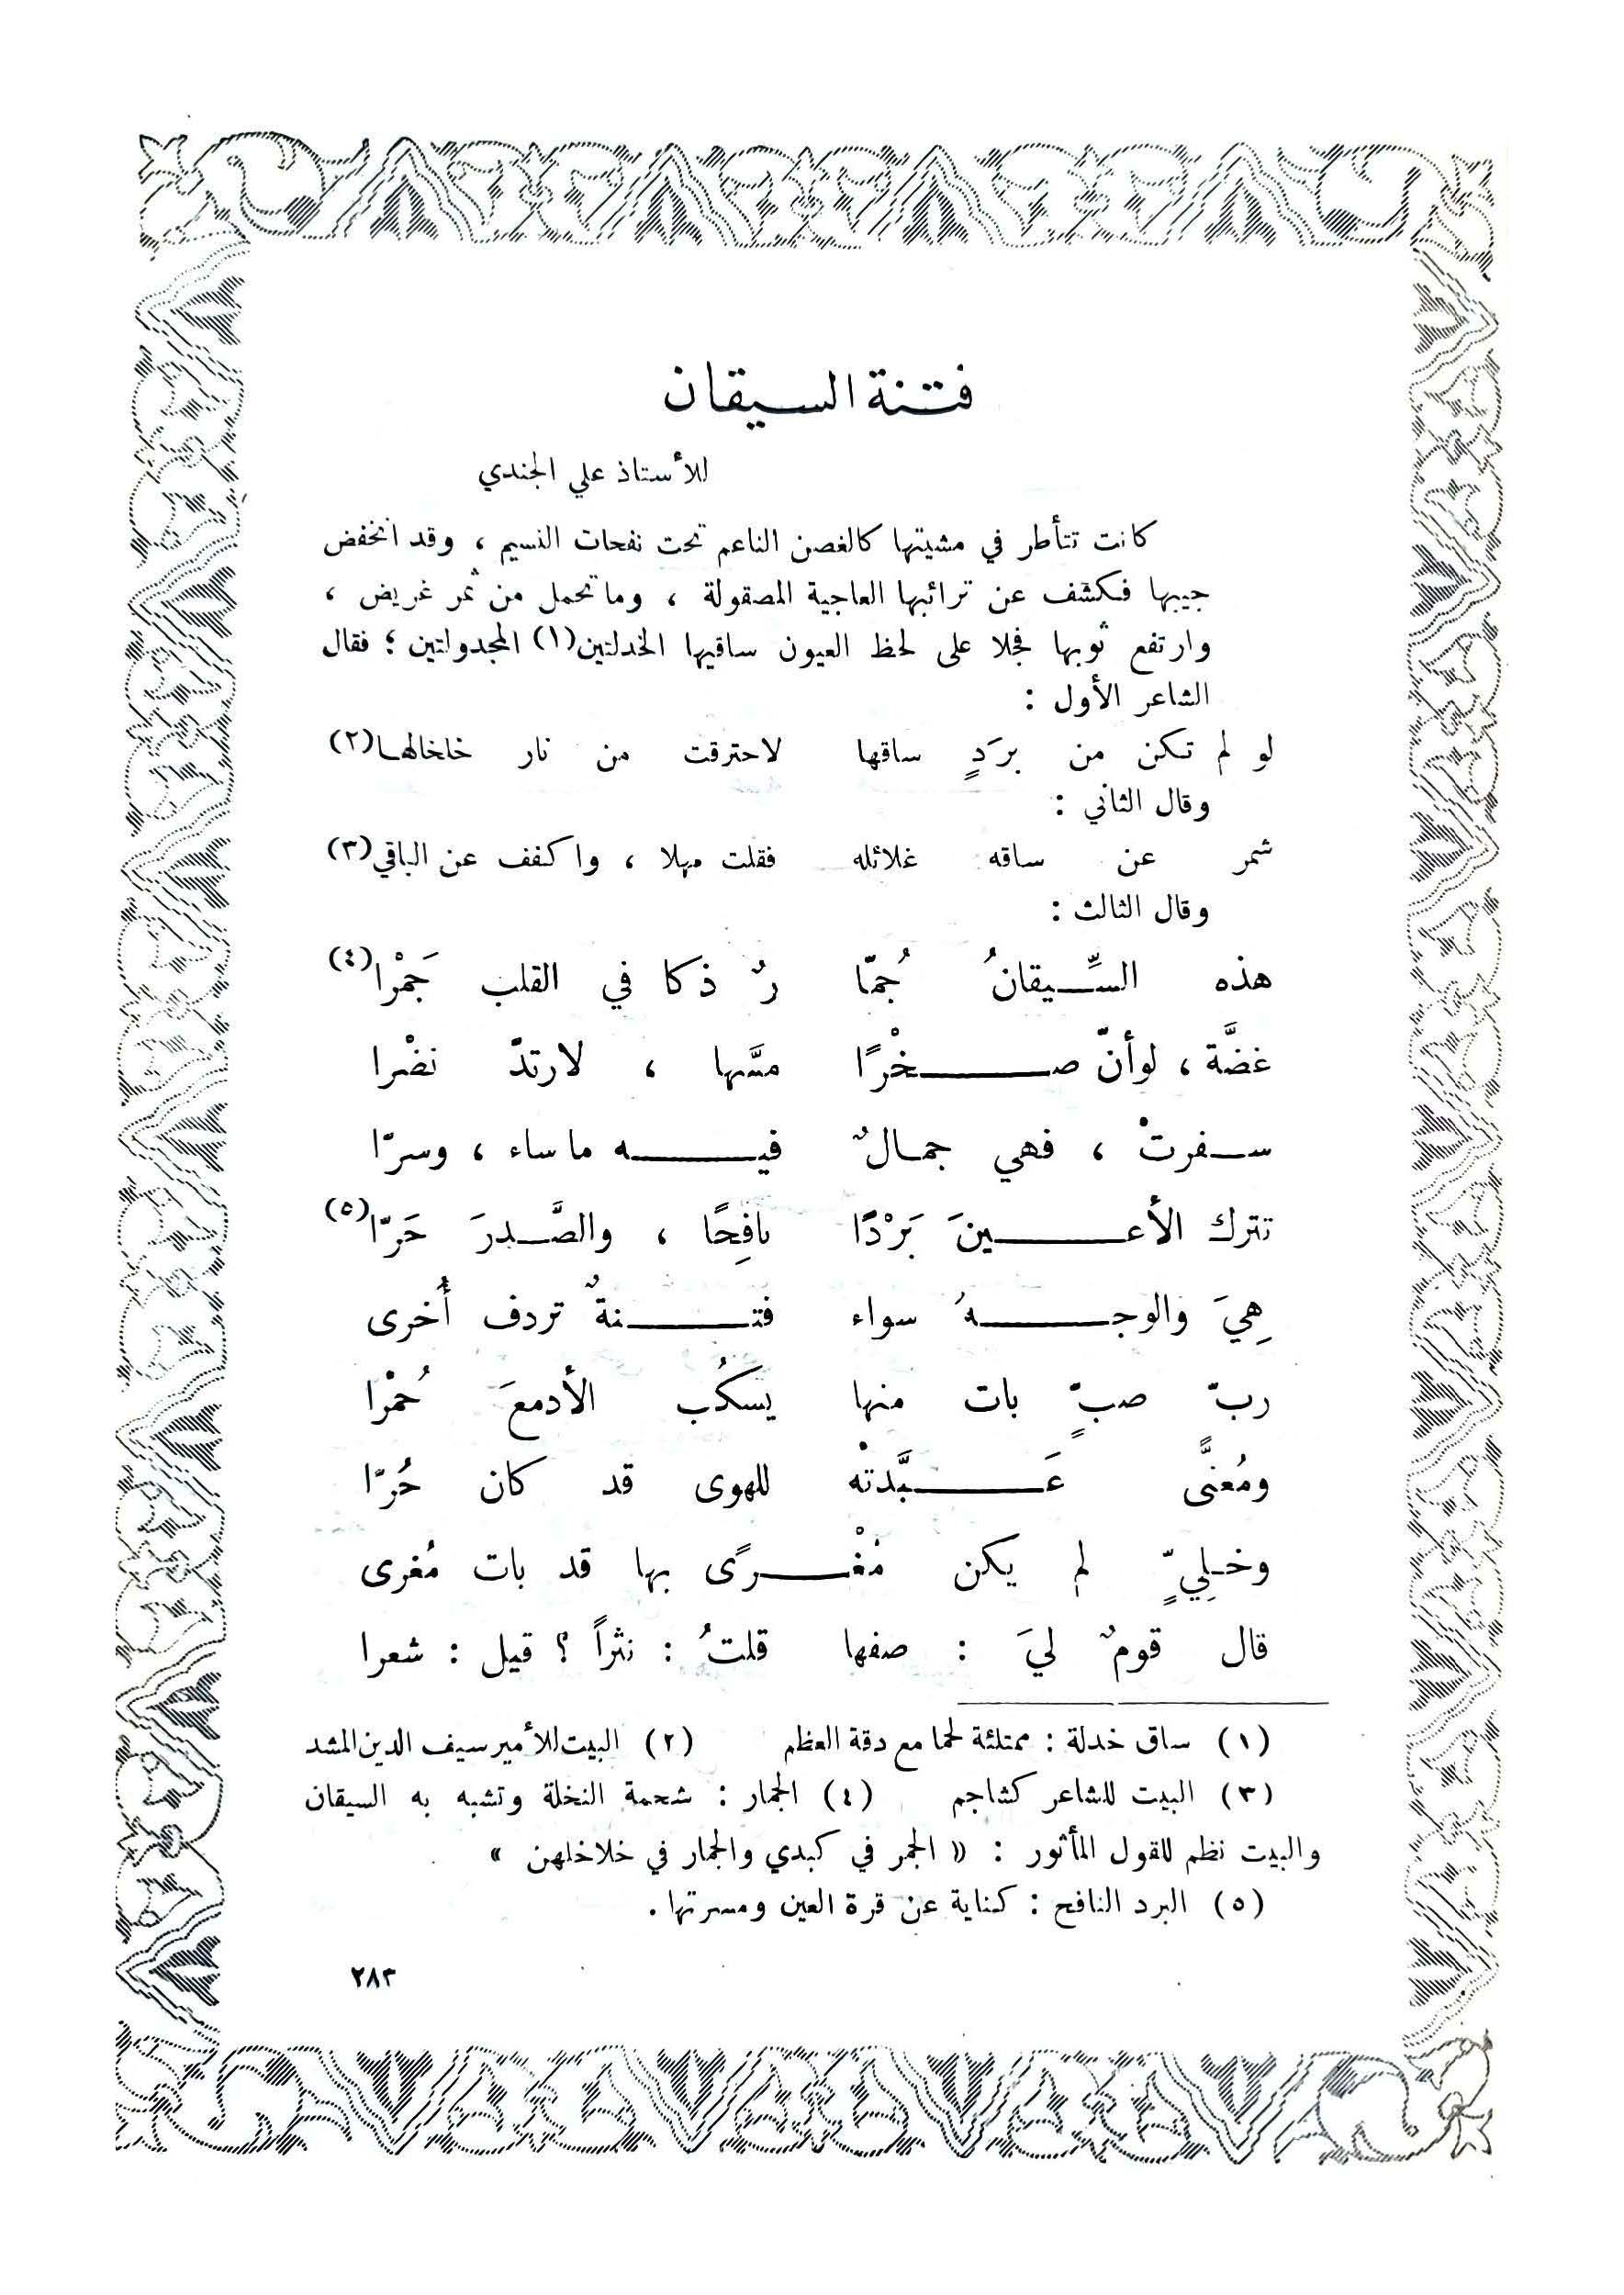 فتنة السيقان
للأستاذ علي الجندي
كانت تتأطر في مشيتها كالغصن الناعم تحت نفحات النسيم ، وقد انخفض
جيبها فكشف عن ترائبها العاجية المصقولة ، وما تحمل من ثمر غريض ،
وارتفع ثوبها فجلا على لحظ العيون ساقيها الخدلتين(١) المجدولتين ؛ فقال
الشاعر الأول :
لو لم تكن من برَدٍ ساقها لاحترقت من نار خلخالها(٢)
وقال الثاني :
شمر عن ساقه غلائله فقلت مهلا ، واكفف عن الباقي(٣)
وقال الثالث :
هذه السِّيقانُ جُمّا رٌ ذكا في القلب جَمْرا(٤)
غضَّة ، لو أنّ صخْرًا مسَّها ، لارتدّ نضْرا
سفرتْ ، فهي جمالٌ فيه ما ساء ، وسرّا
تترك الأعينَ بَرْدًا نافِحًا ، والصَّدرَ حَرّا(٥)
هِيَ والوجهُ سواء فتنةٌ تردف أُخرى
ربّ صبٍّ بات منها يسكُب الأدمعَ حُمْرا
ومُعنًّى عَبَّدتْه للهوى قد كان حُرّا
وخلِيٍّ لم يكن مُغْرًى بها قد بات مُغرى
قال قومٌ ليَ : صفها قلتُ : نثراً ؟ قيل : شعرا
(١) ساق خدلة : ممتلئة لحما مع دقة العظم (٢) البيت للأمير سيف الدين المشد
(٣) البيت للشاعر كشاجم (٤) الجمار : شحمة النخلة وتشبه به السيقان
والبيت نظم للقول المأثور : « الجمر في كبدي والجمار في خلاخلهن »
(٥) البرد النافح : كناية عن قرة العين ومسرتها .
٢٨٣